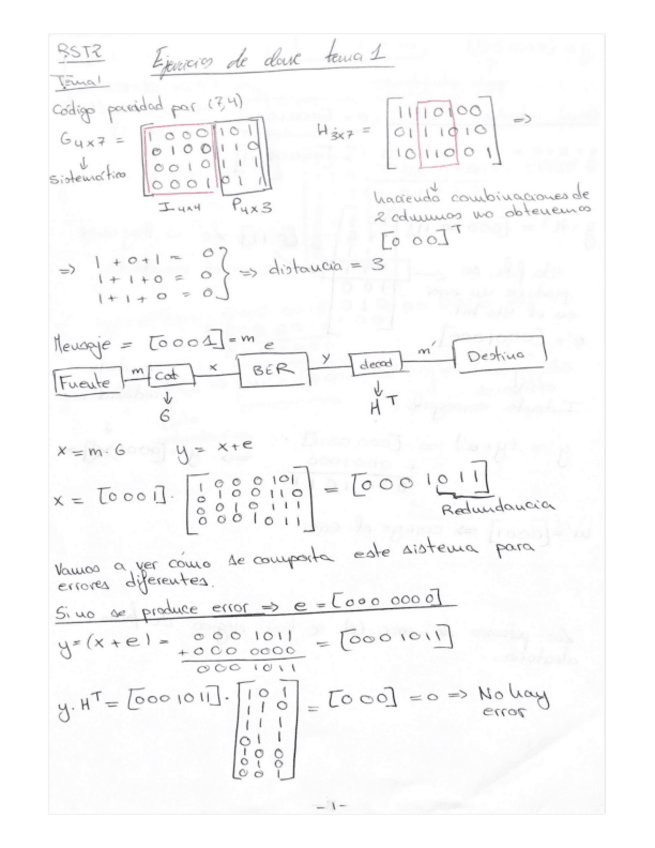 RSTR
Ejercicios de clase tema 1
Tema 1
Código paridad par (7,4)
G4x7 = [1 0 0 0 1 0 1
0 1 0 0 1 1 0
0 0 1 0 1 1 1
0 0 0 1 0 1 1]
↓
Sistemático
I4x4 P4x3
H3x7 = [1 1 1 0 1 0 0
0 1 1 1 0 1 0
1 0 1 1 0 0 1] ⇒
haciendo combinaciones de
2 columnas no obtenemos
[0 0 0]ᵀ
⇒ 1 + 0 + 1 = 0
1 + 1 + 0 = 0
1 + 1 + 0 = 0 } ⇒ distancia = 3
Mensaje = [0 0 0 1] = m
e
Fuente m Cod x BER y decod m' Destino
↓ ↓
G Hᵀ
x = m · G y = x + e
x = [0 0 0 1] · [1 0 0 0 1 0 1
0 1 0 0 1 1 0
0 0 1 0 1 1 1
0 0 0 1 0 1 1] = [0 0 0 1 0 1 1]
Redundancia
Vamos a ver cómo se comporta este sistema para
errores diferentes.
Si no se produce error ⇒ e = [0 0 0 0 0 0 0]
y = (x + e) = 0 0 0 1 0 1 1
+ 0 0 0 0 0 0 0
0 0 0 1 0 1 1 = [0 0 0 1 0 1 1]
y · Hᵀ = [0 0 0 1 0 1 1] · [1 0 1
1 1 0
1 1 1
0 1 1
1 0 0
0 1 0
0 0 1] = [0 0 0] = 0 ⇒ No hay
error
- 1 -